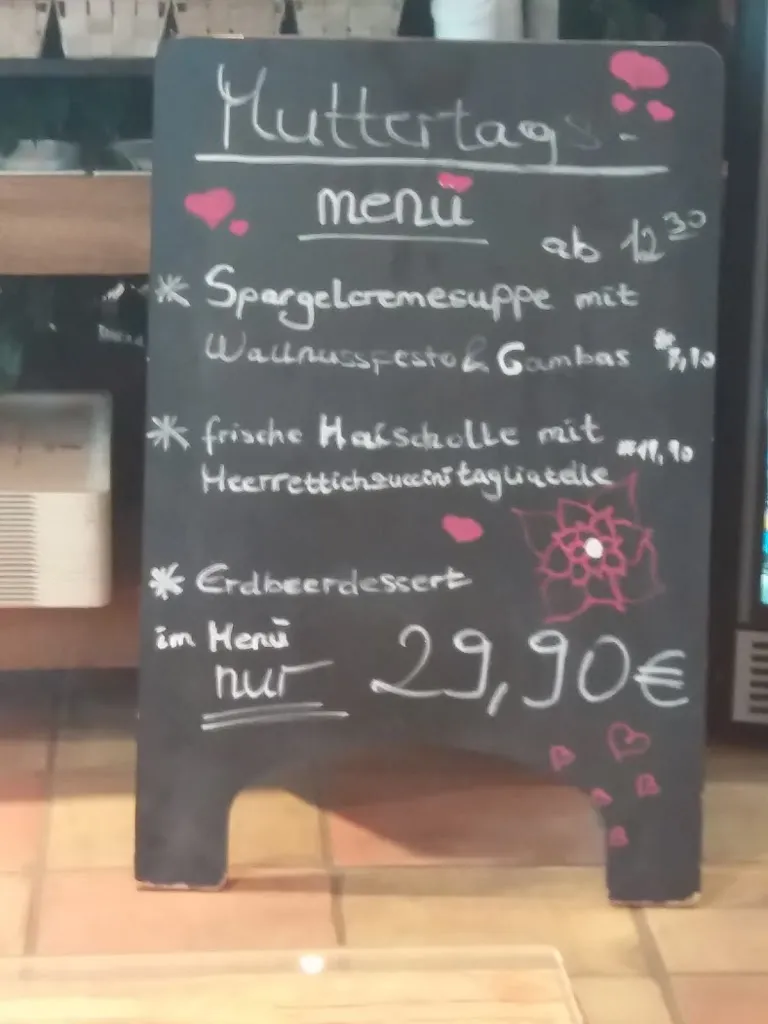 Muttertags-
menü
ab 12³⁰
* Spargelcremesuppe mit
Wallnusspesto & Gambas *7,90
* frische Maischolle mit
Meerrettichzuccinitagliatelle *19,90
* Erdbeerdessert
im Menü
nur 29,90€